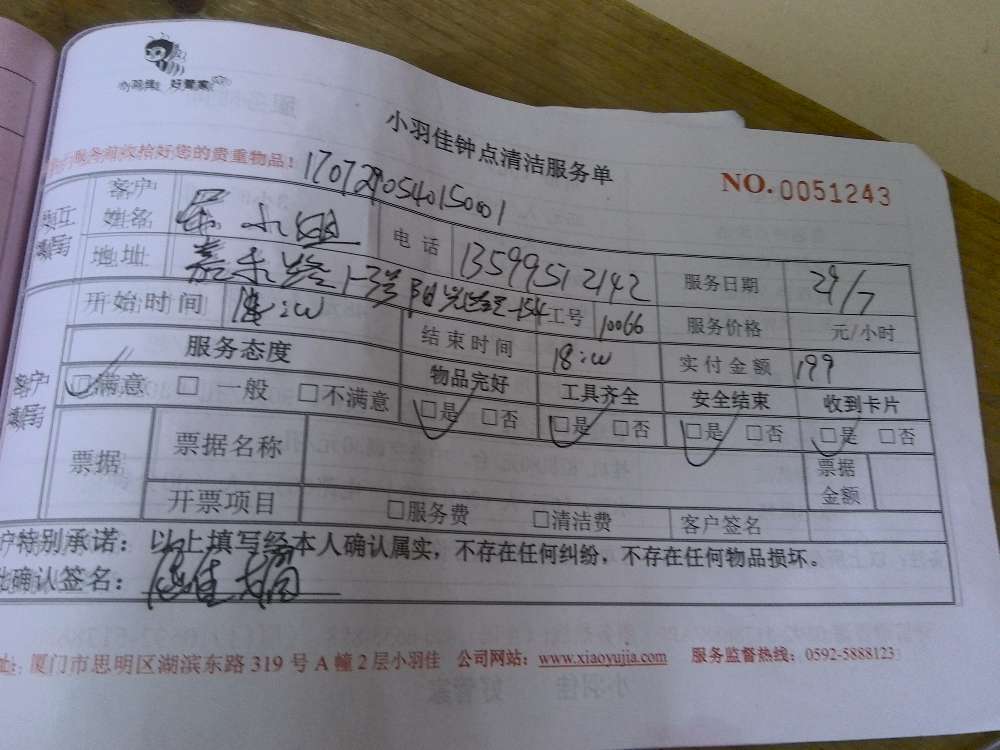 小羽佳 好管家
小羽佳钟点清洁服务单
服务前收拾好您的贵重物品！
1707290540150001
NO.0051243
客户姓名 小姐 电话 13599512142 服务日期 29/7
地址 嘉禾路 工号 10066 服务价格 元/小时
开始时间 结束时间 18:00 实付金额 199
客户 服务态度 物品完好 工具齐全 安全结束 收到卡片
□满意 □一般 □不满意 □是 □否 □是 □否 □是 □否 □是 □否
票据 票据名称 票据金额
开票项目 □服务费 □清洁费 客户签名
户特别承诺：以上填写经本人确认属实，不存在任何纠纷，不存在任何物品损坏。
此确认签名：
址：厦门市思明区湖滨东路319号A幢2层小羽佳 公司网站：www.xiaoyujia.com 服务监督热线：0592-5888123